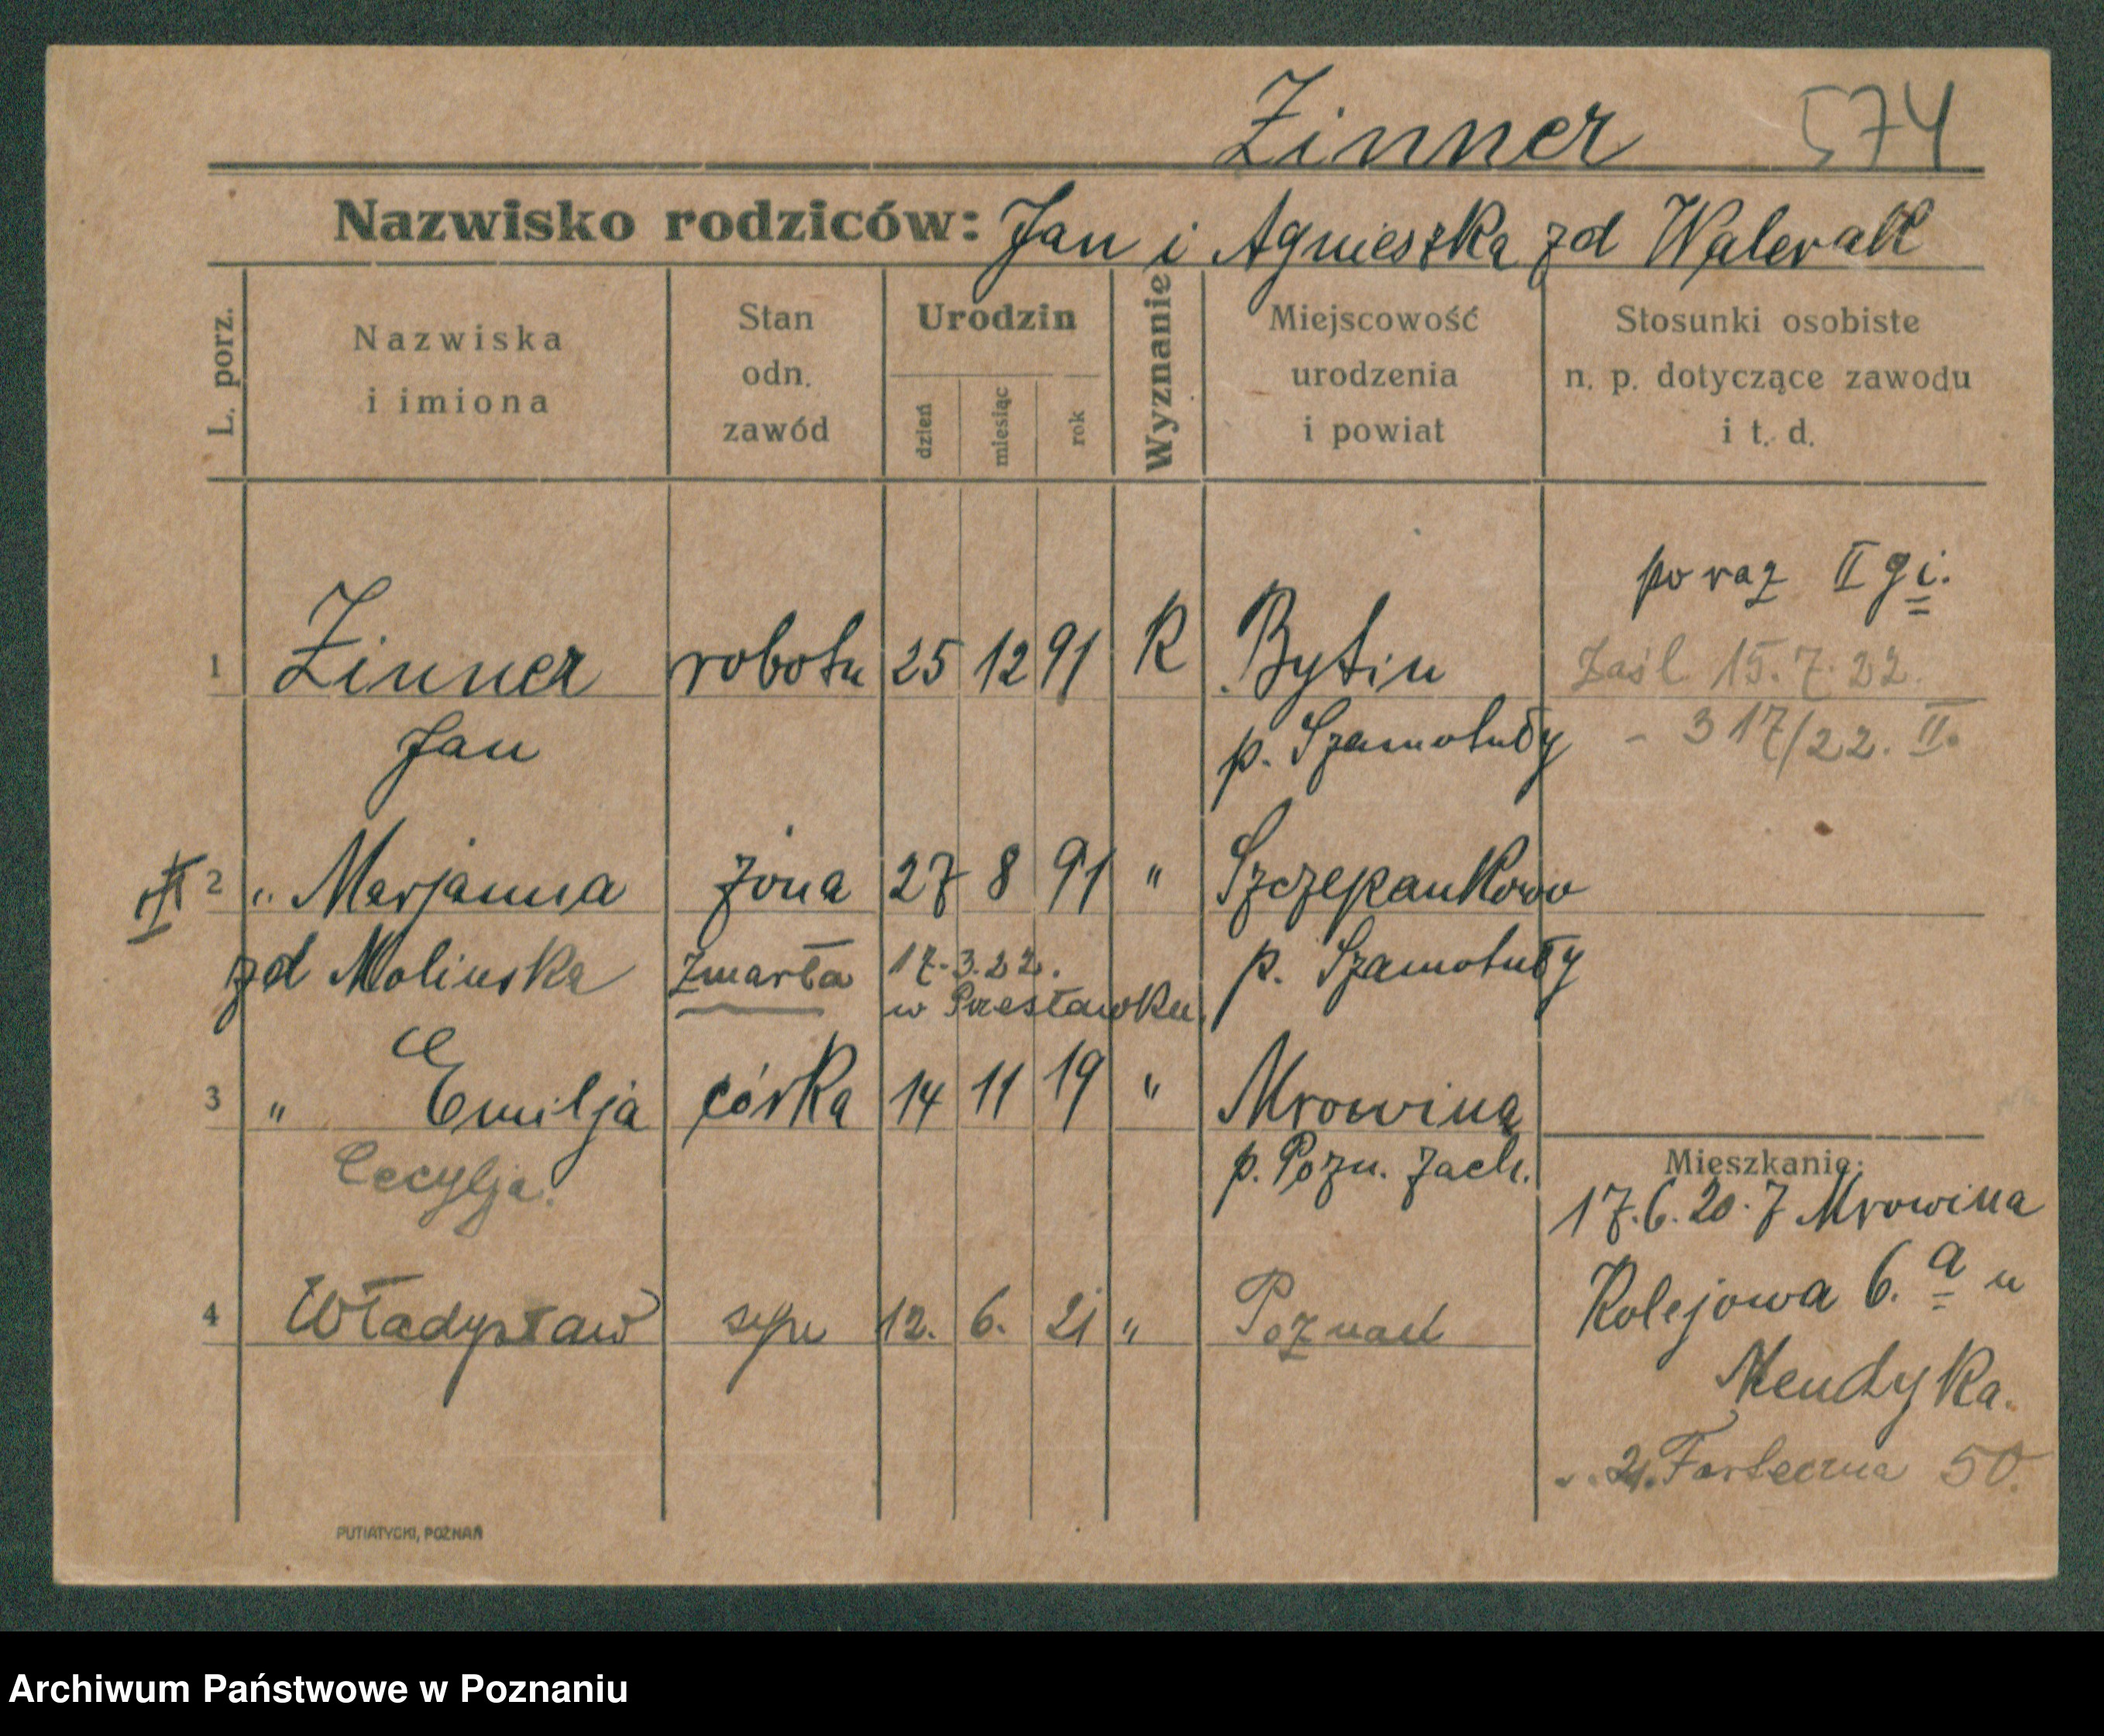 Zinner 574
Nazwisko rodziców: Jan i Agnieszka zd Walerall
L. porz. Nazwiska i imiona Stan odn. zawód Urodzin dzień miesiąc rok Wyznanie Miejscowość urodzenia i powiat Stosunki osobiste n. p. dotyczące zawodu i t. d.
po raz II gi.
1 Zinner robotn 25 12 91 R Bytin Zaśl 15.7.22.
Jan p. Szamotuły - 317/22. II.
2 " Marjanna żona 27 8 91 " Szczepankowo
zd Molinska zmarła 17.3.22. p. Szamotuły
w Przesławku.
3 " Emilja córka 14 11 19 " Mrowina
Cecylja. p. Pozn. Zach. Mieszkanie:
17.6.20. z Mrowina
4 Władysław syn 12. 6. 21 " Poznań Kolejowa 6. a u
Mendyka.
21. Forteczna 50.
PUTIATYCKI, POZNAŃ
Archiwum Państwowe w Poznaniu